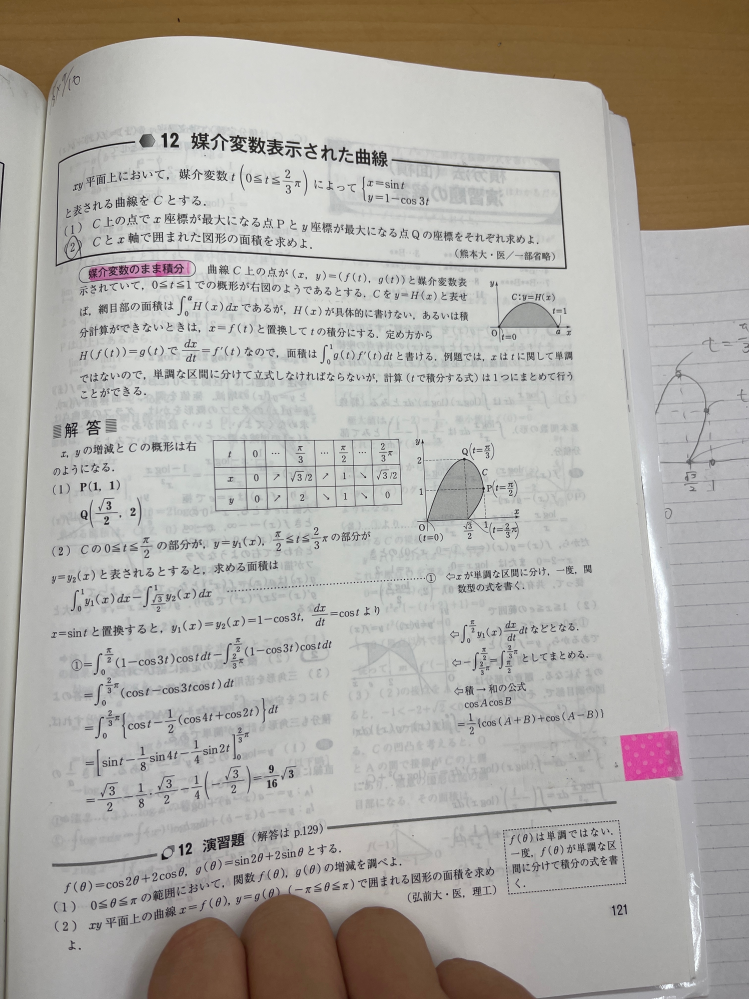 12 媒介変数表示された曲線
xy平面上において，媒介変数t(0≦t≦2/3π)によって{x=sint
y=1−cos3t
と表される曲線をCとする．
(1) C上の点でx座標が最大になる点Pとy座標が最大になる点Qの座標をそれぞれ求めよ．
(2) Cとx軸で囲まれた図形の面積を求めよ．
(熊本大・医／一部省略)
媒介変数のまま積分 曲線C上の点が(x, y)=(f(t), g(t))と媒介変数表
示されていて，0≦t≦1での概形が右図のようであるとする．Cをy=H(x)と表せ
ば，網目部の面積は∫₀ᵃH(x)dxであるが，H(x)が具体的に書けない，あるいは積
分計算ができないときは，x=f(t)と置換してtの積分にする．定め方から
H(f(t))=g(t)でdx/dt=f′(t)なので，面積は∫₀¹g(t)f′(t)dtと書ける．例題では，xはtに関して単調
ではないので，単調な区間に分けて立式しなければならないが，計算(tで積分する式)は1つにまとめて行う
ことができる．
y
C:y=H(x)
t=1
O
t=0
a
x
解答
x, yの増減とCの概形は右
のようになる．
(1) P(1, 1)
Q(√3/2, 2)
t 0 … π/3 … π/2 … 2/3π
x 0 ↗ √3/2 ↗ 1 ↘ √3/2
y 0 ↗ 2 ↘ 1 ↘ 0
y
2
1
Q(t=π/3)
C
P(t=π/2)
O
(t=0)
√3/2
1
x
(t=2/3π)
(2) Cの0≦t≦π/2の部分が，y=y₁(x)，π/2≦t≦2/3πの部分が
y=y₂(x)と表されるとすると，求める面積は
∫₀¹y₁(x)dx−∫_{√3/2}^{1}y₂(x)dx ……① ⇦xが単調な区間に分け，一度，関
数型の式を書く．
x=sintと置換すると，y₁(x)=y₂(x)=1−cos3t，dx/dt=costより
①=∫_{0}^{π/2}(1−cos3t)costdt−∫_{2/3π}^{π/2}(1−cos3t)costdt
=∫_{0}^{2/3π}(cost−cos3tcost)dt
=∫_{0}^{2/3π}{cost−1/2(cos4t+cos2t)}dt
=[sint−1/8sin4t−1/4sin2t]_{0}^{2/3π}
=√3/2−1/8・√3/2−1/4(−√3/2)=9/16√3
⇦∫_{0}^{π/2}y₁(x)dx/dt dtなどとなる．
⇦−∫_{2/3π}^{π/2}=∫_{π/2}^{2/3π}としてまとめる．
⇦積→和の公式
cosAcosB
=1/2{cos(A+B)+cos(A−B)}
12 演習題(解答はp.129)
f(θ)=cos2θ+2cosθ, g(θ)=sin2θ+2sinθとする．
(1) 0≦θ≦πの範囲において，関数f(θ), g(θ)の増減を調べよ．
(2) xy平面上の曲線x=f(θ), y=g(θ) (−π≦θ≦π)で囲まれる図形の面積を求め
よ．
(弘前大・医，理工)
f(θ)は単調ではない．
一度，f(θ)が単調な区
間に分けて積分の式を書
く．
121